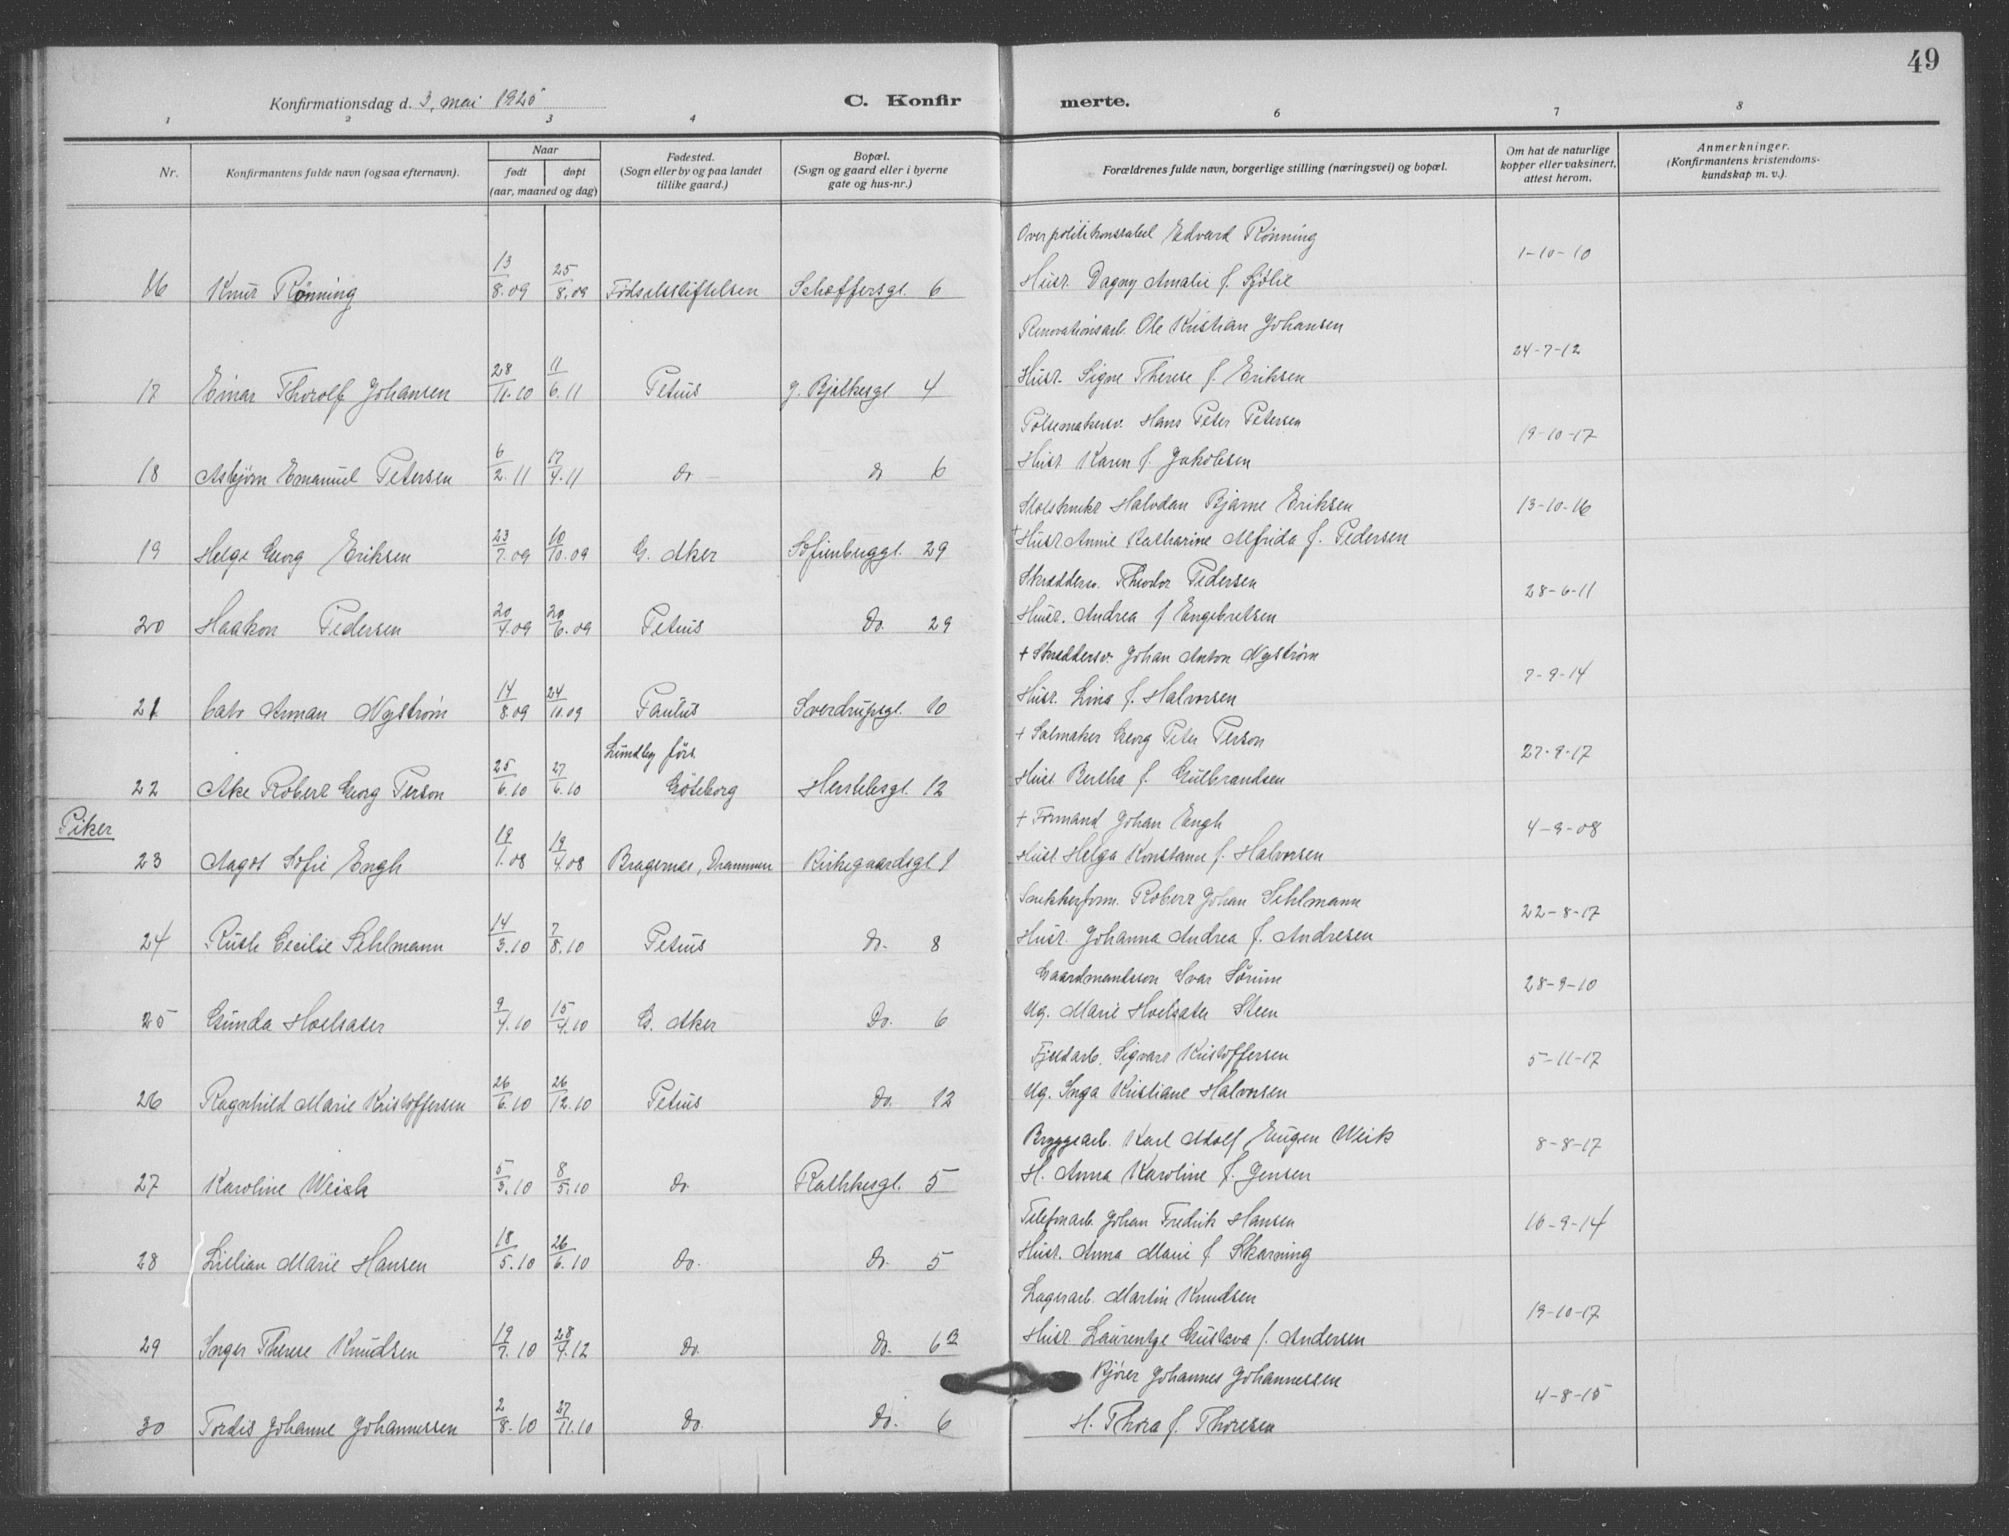 49
Konfirmationsdag d. 3. mai 1925
C. Konfirmerte.
1 2 3 4 6 7 8
Nr.
Konfirmantens fulde navn (ogsaa efternavn).
Naar
født døpt
(aar, maaned og dag)
Fødested.
(Sogn eller by og paa landet
tillike gaard.)
Bopæl.
(Sogn og gaard eller i byerne
gate og hus-nr.)
Forældrenes fulde navn, borgerlige stilling (næringsvei) og bopæl.
Om hat de naturlige
kopper eller vaksinert,
attest herom.
Anmerkninger.
(Konfirmantens kristendoms-
kundskap m. v.).
Overpolitikonstabel Edvard Rønning
16 Knut Rønning 13/8.09 25/8.09 Fødselsstiftelsen Scheffersgt. 6 Hust. Dagny Amalie f. Sjølie 1-10-10
Renovationsarb. Ole Kristian Johansen
17 Einar Thorolf Johansen 28/11.10 11/6.11 Petrus g. Bjelkesgt 4 Hust. Signe Therese f. Eriksen 24-7-12
Pølsemakersv. Hans Peter Petersen
18 Asbjørn Emanuel Petersen 6/2.11 17/4.11 do do 6 Hust. Karen f. Jakobsen 19-10-17
Halvdan Bjarne Eriksen 13-10-16
19 Helge Georg Eriksen 23/7.09 10/10.09 G. Aker Sofienberggt. 29 + Hust Annie Katharine Alfrida f. Pedersen
Skreddersv. Theodor Pedersen
20 Haakon Pedersen 20/4.09 20/6.09 Petrus Do. 29 Hust. Andrea f Engebretsen 28-6-11
+ Skreddersv. Johan Anton Nystrøm
21 Cato Arman Nystrøm 14/8.09 24/10.09 Paulus Sverdrupsgt. 10 Hust. Lina f. Halvorsen 7-9-14
+ Salmaker Georg Peter Person
Lundby førs.
22 Ake Robert Georg Person 25/6.10 27/6.10 Göteborg Herslebsgt. 12 Hust Bertha f. Gulbrandsen 27-9-17
Piker
+ Formand Johan Engh
23 Aagot Sofie Engh 19/1.08 19/4.08 Bragernes, Drammen Kirkegaardsgt 1 Hust Helga Konstanse f. Halvorsen 4-9-08
Snekkerform. Robert Johan Sehlmann
24 Ruth Cecilie Sehlmann 14/3.10 7/8.10 Petrus do. 8 Hust. Johanna Andrea f. Andresen 22-8-17
Gaardmandssøn Ivar Sørum
25 Gunda Hoelsater 9/4.10 15/4.10 G. Aker Do. 6 Ug. Marie Hoelsater Steen 28-9-10
Fjeldarb. Sigvart Kristoffersen
26 Ragnhild Marie Kristoffersen 26/6.10 26/12.10 Petrus Do. 12 Ug. Inga Kristiane Halvorsen 5-11-17
Bryggearb. Karl Adolf Eugen Weik
27 Karoline Weick 5/3.10 8/5.10 do Rathkesgt. 5 H. Anna Karoline f. Jensen 8-8-17
Telefonarb. Johan Fredrik Hansen
28 Lillian Marie Hansen 18/5.10 26/6.10 do. do. 5 Hust. Anna Marie f. Skarning 16-9-14
Lagerarb. Martin Knudsen
29 Inger Therese Knudsen 19/7.10 28/4.12 do. do. 6B Hust. Laurentze Gustava f. Andersen 19-10-17
Kjører Johannes Johannessen
30 Tordis Johanne Johannessen 2/8.10 27/11.10 do. do. 6 H. Thora f. Thoresen 4-8-15